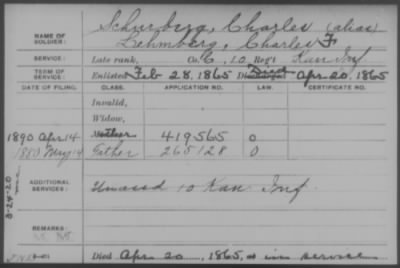 NAME OF SOLDIER: Schurberg, Charles (alias)
Lehmberg, Charles F
SERVICE: Late rank, Co. C, 10 Reg't Kan Inf
TERM OF SERVICE: Enlisted Feb 28, 1865 Discharged Died Apr 20, 1865
DATE OF FILING. CLASS. APPLICATION NO. LAW. CERTIFICATE NO.
Invalid,
Widow,
1890 Apr 14 Mother 419565 O
1880 May 14 Father 265128 O
ADDITIONAL SERVICES: Unassd 10 Kan Inf
3-24-20
REMARKS:
Died Apr 20, 1865, in service